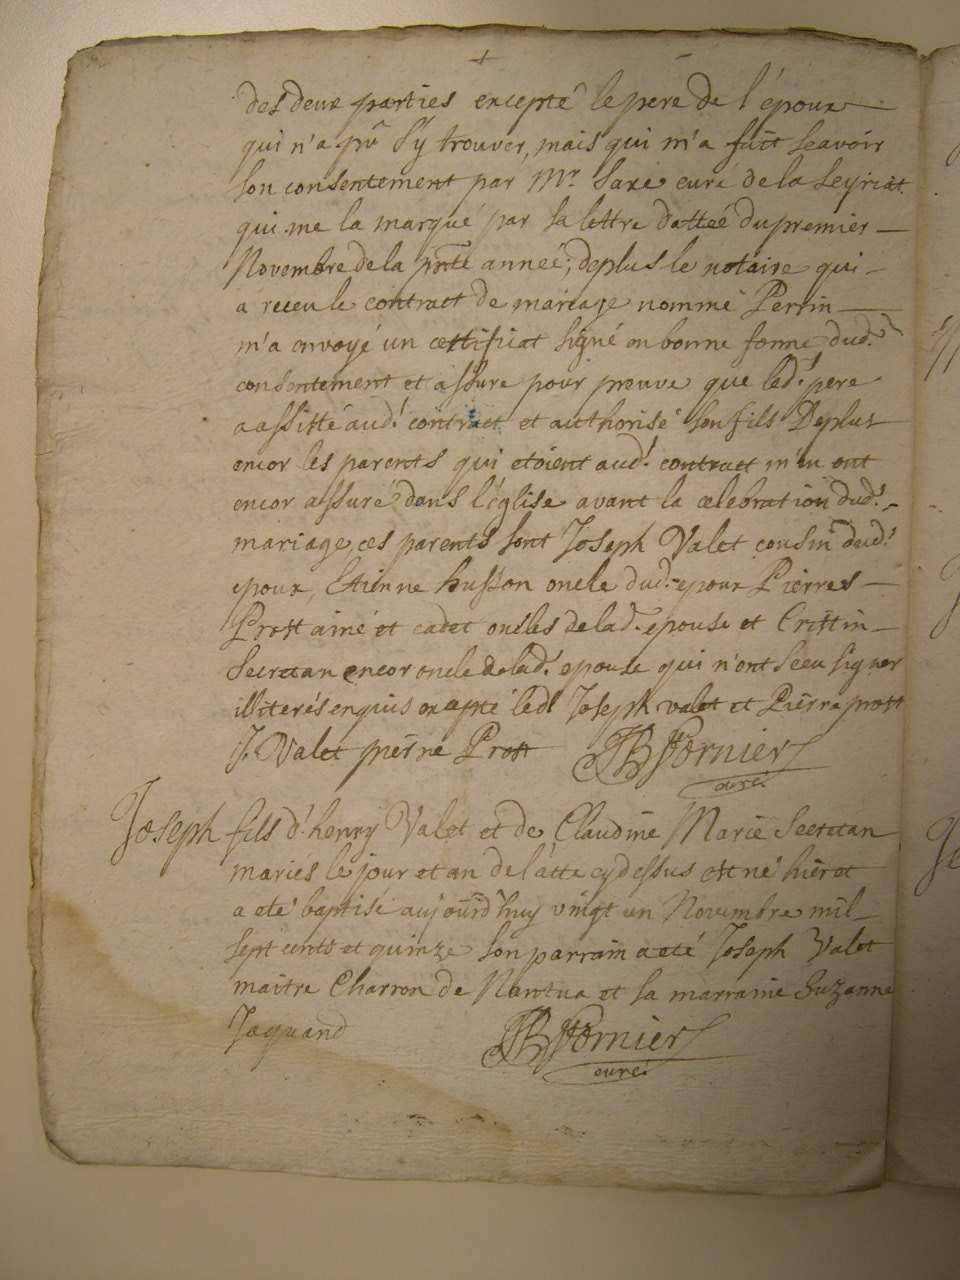 des deux parties excepté le pere de l'époux
qui n'a pu s'y trouver, mais qui m'a fait scavoir
son consentement par Mr. Saxe curé de la Leyriat
qui me la marqué par sa lettre dattéé du premier
Novembre de la pnte année; deplus le notaire qui
a receu le contract de mariage nommé Perrin
m'a envoyé un cettificat signé en bonne forme dud.
consentement et assure pour preuve que led. pere
a assisté aud. contract et authorisé son fils Deplus
encor les parents qui etoient aud. contract m'en ont
encor assuré dans l'église avant la celebration dud.
mariage, ces parents sont Joseph Valet cousin dud.
epoux, Etienne husson oncle dud. epoux Pierres
Prost ainé et cadet oncles de lad. epouse et Cristin
Secretan encor oncle de lad. epouse qui n'ont sceu signer
illiterés enquis excepté led. Joseph valet et Pierre prost
J. Valet pierre Prost JB Fornier
curé.
Joseph fils d'henry Valet et de Claudine Marie Secretan
mariés le jour et an de l'atte cy dessus est né hier et
a eté baptisé aujourd'huy vingt un Novembre mil
sept cents et quinze son parrain a eté Joseph Valet
maitre Charron de Nantua et sa marraine Suzanne
Jaquand JB Fornier
curé.